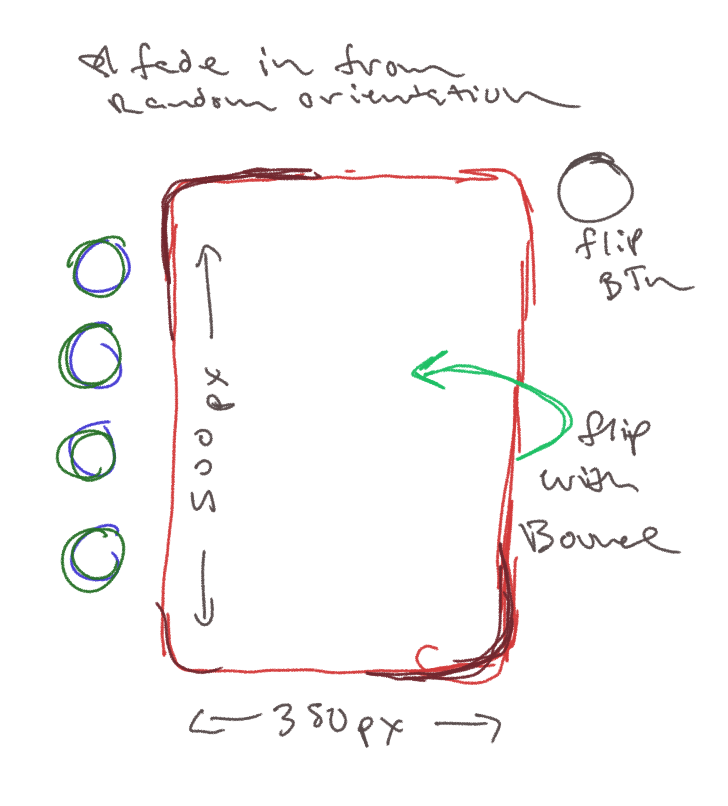 fade in from
Random orientation
flip
BTn
500px
flip
with
Bounce
350px